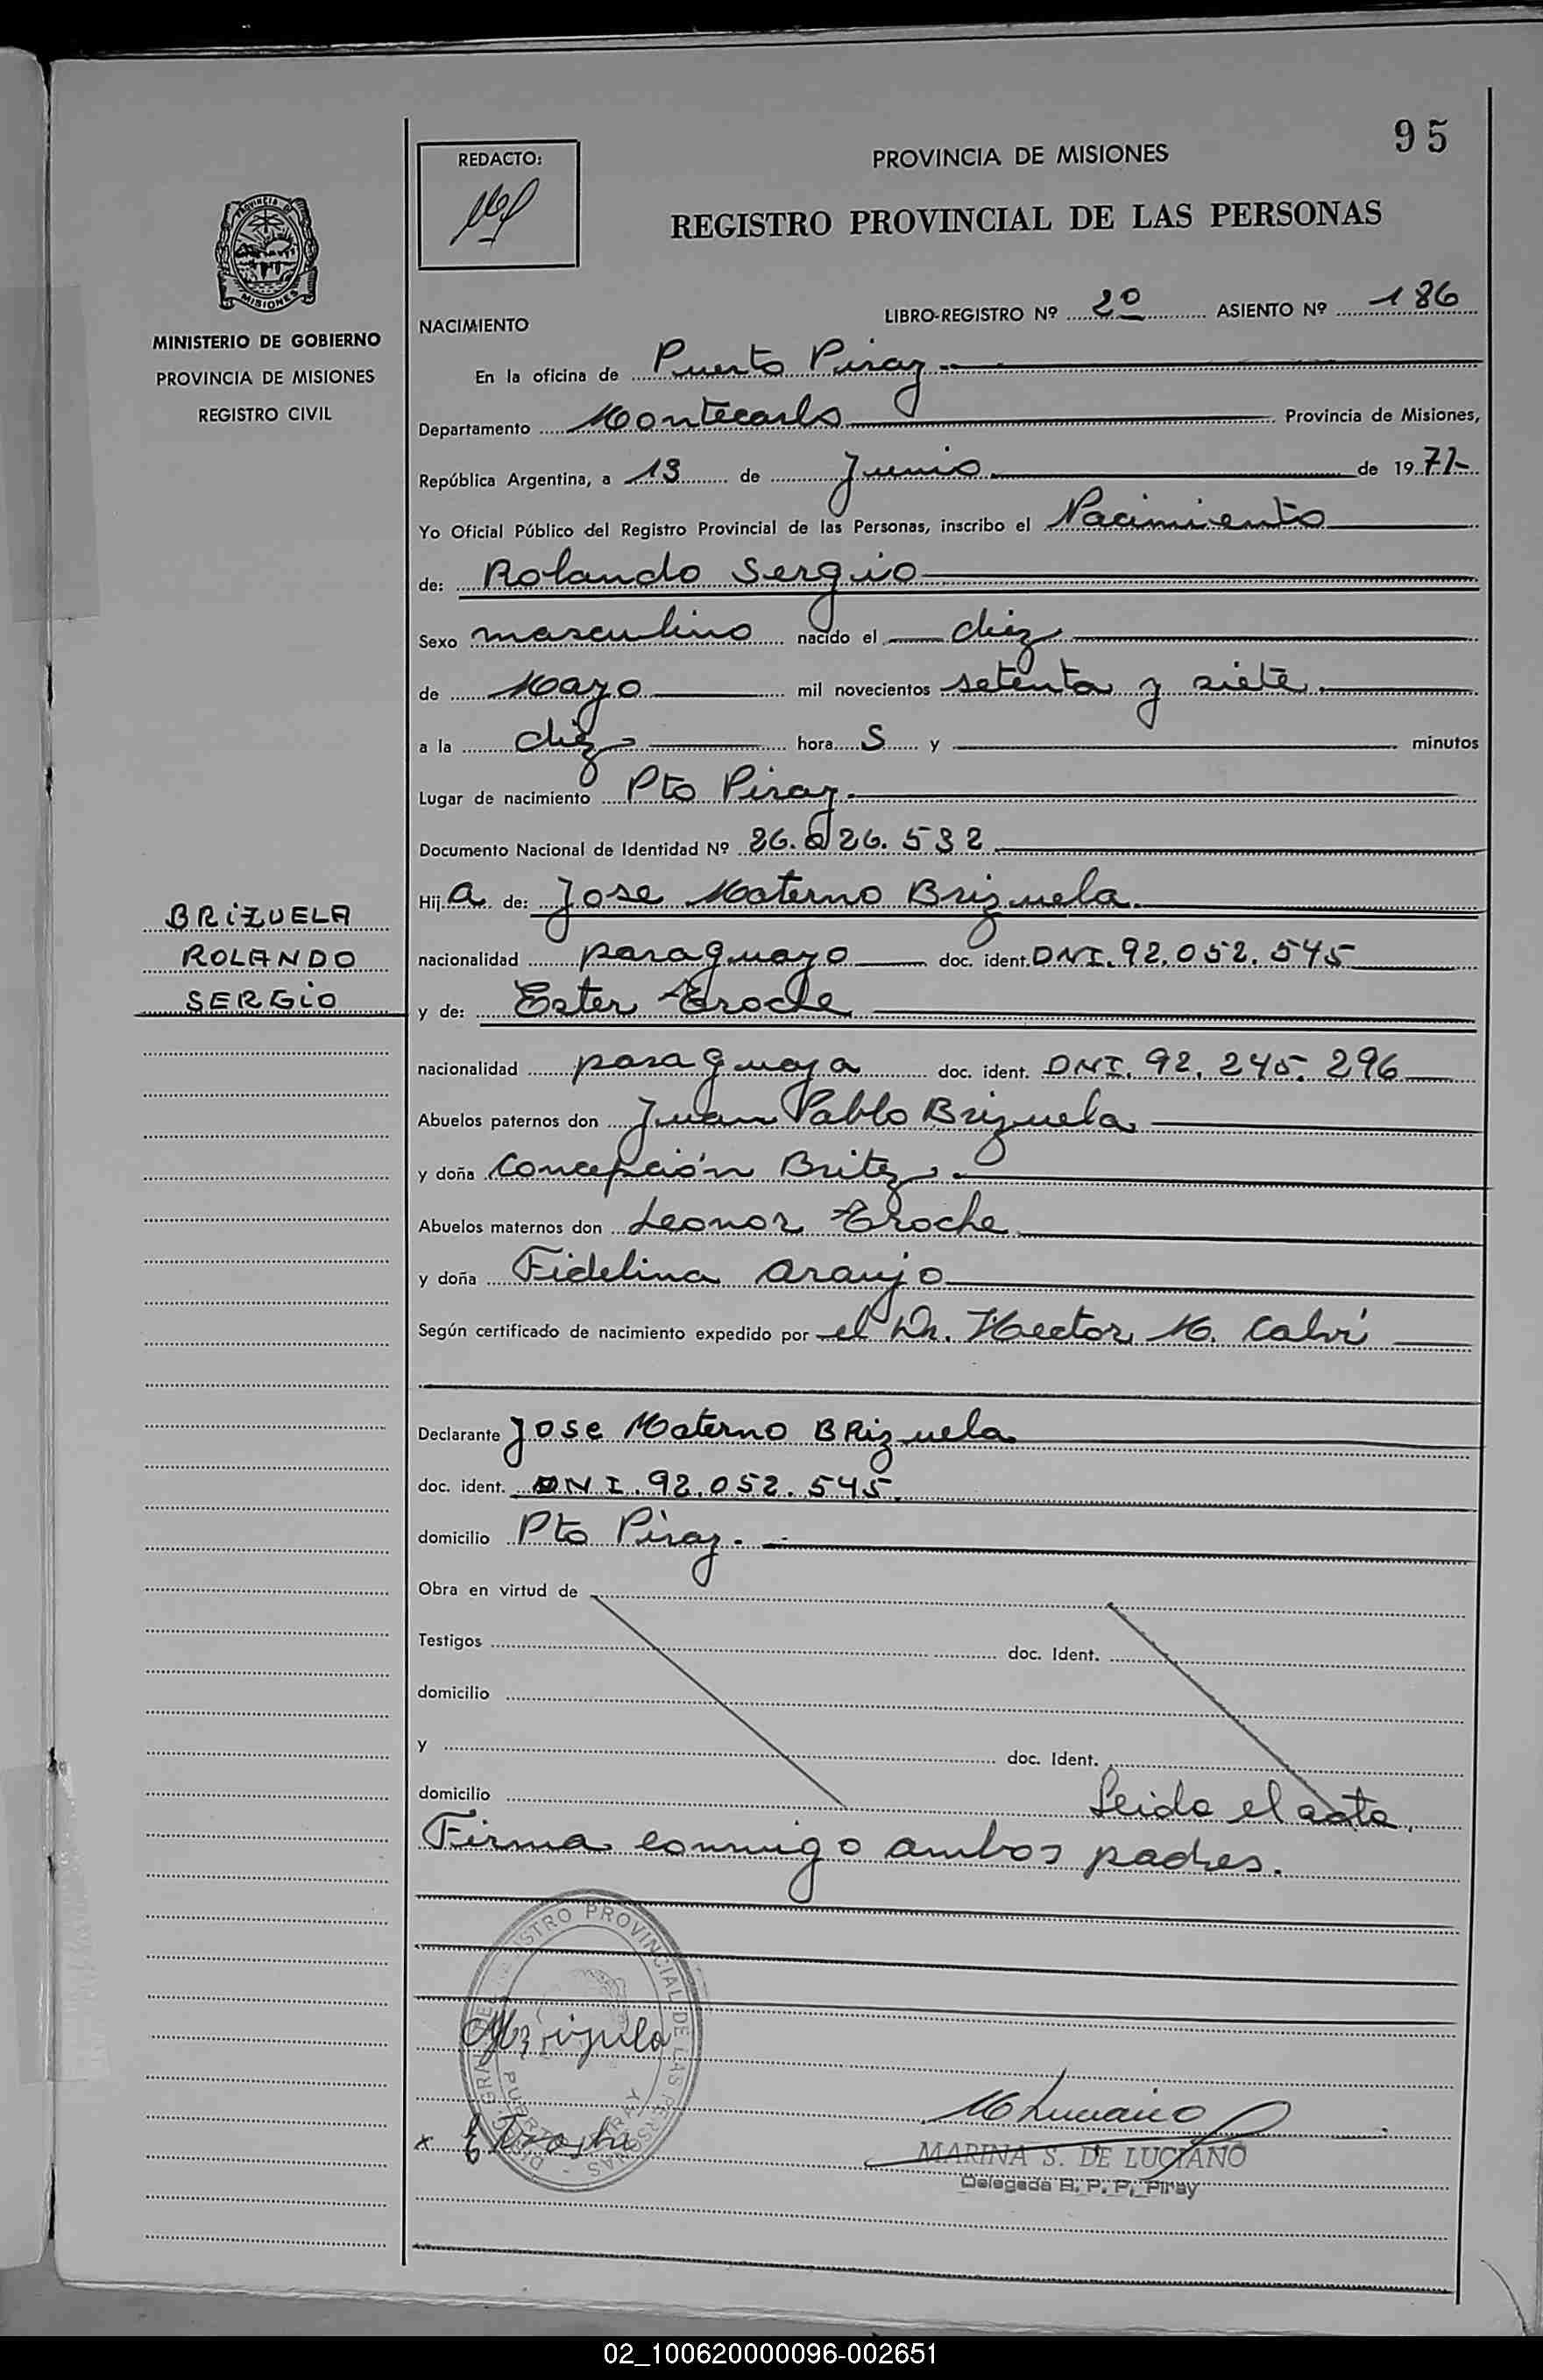 95
REDACTO:
PROVINCIA DE MISIONES
REGISTRO PROVINCIAL DE LAS PERSONAS
PROVINCIA DE
MISIONES
MINISTERIO DE GOBIERNO
PROVINCIA DE MISIONES
REGISTRO CIVIL
LIBRO-REGISTRO Nº 2º ASIENTO Nº 186
NACIMIENTO
En la oficina de Puerto Piray
Departamento Montecarlo Provincia de Misiones,
República Argentina, a 13 de Junio de 1977
Yo Oficial Público del Registro Provincial de las Personas, inscribo el Nacimiento
de: Rolando Sergio
Sexo masculino nacido el diez
de Mayo mil novecientos setenta y siete
a la diez hora S y minutos
Lugar de nacimiento Pto Piray
Documento Nacional de Identidad Nº 26.226.532
Hij a de: Jose Materno Brizuela
BRIZUELA
ROLANDO
SERGIO
nacionalidad paraguayo doc. ident. DNI. 92.052.545
y de: Ester Eroche
nacionalidad paraguaya doc. ident. DNI. 92.245.296
Abuelos paternos don Juan Pablo Brizuela
y doña Concepción Britez
Abuelos maternos don Leonor Eroche
y doña Fidelina Araujo
Según certificado de nacimiento expedido por el Dr. Hector M. Calvi
Declarante Jose Materno BRizuela
doc. ident. DNI. 92.052.545
domicilio Pto Piray.
Obra en virtud de
Testigos doc. Ident.
domicilio
y doc. Ident.
domicilio Leida el acta,
Firma conmigo ambos padres.
REGISTRO PROVINCIAL DE LAS PERSONAS
M Luciano
MARINA S. DE LUCIANO
Delegada R. P. P. Piray
02_100620000096-002651